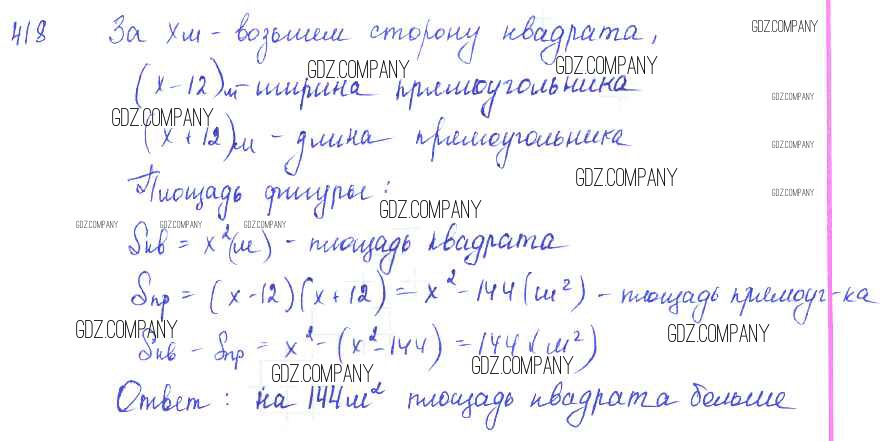 418 За x м - возьмем сторону квадрата,
GDZ.COMPANY
GDZ.COMPANY GDZ.COMPANY
(x-12) м - ширина прямоугольника
GDZ.COMPANY
GDZ.COMPANY
(x+12) м - длина прямоугольника
GDZ.COMPANY
GDZ.COMPANY
Площадь фигуры:
GDZ.COMPANY
GDZ.COMPANY
GDZ.COMPANY GDZ.COMPANY GDZ.COMPANY
Sкв = x²(м) - площадь квадрата
Sпр = (x-12)(x+12) = x²-144 (м²) - площадь прямоуг-ка
GDZ.COMPANY GDZ.COMPANY
Sкв - Sпр = x² - (x²-144) = 144 (м²)
GDZ.COMPANY GDZ.COMPANY
Ответ: на 144м² площадь квадрата больше